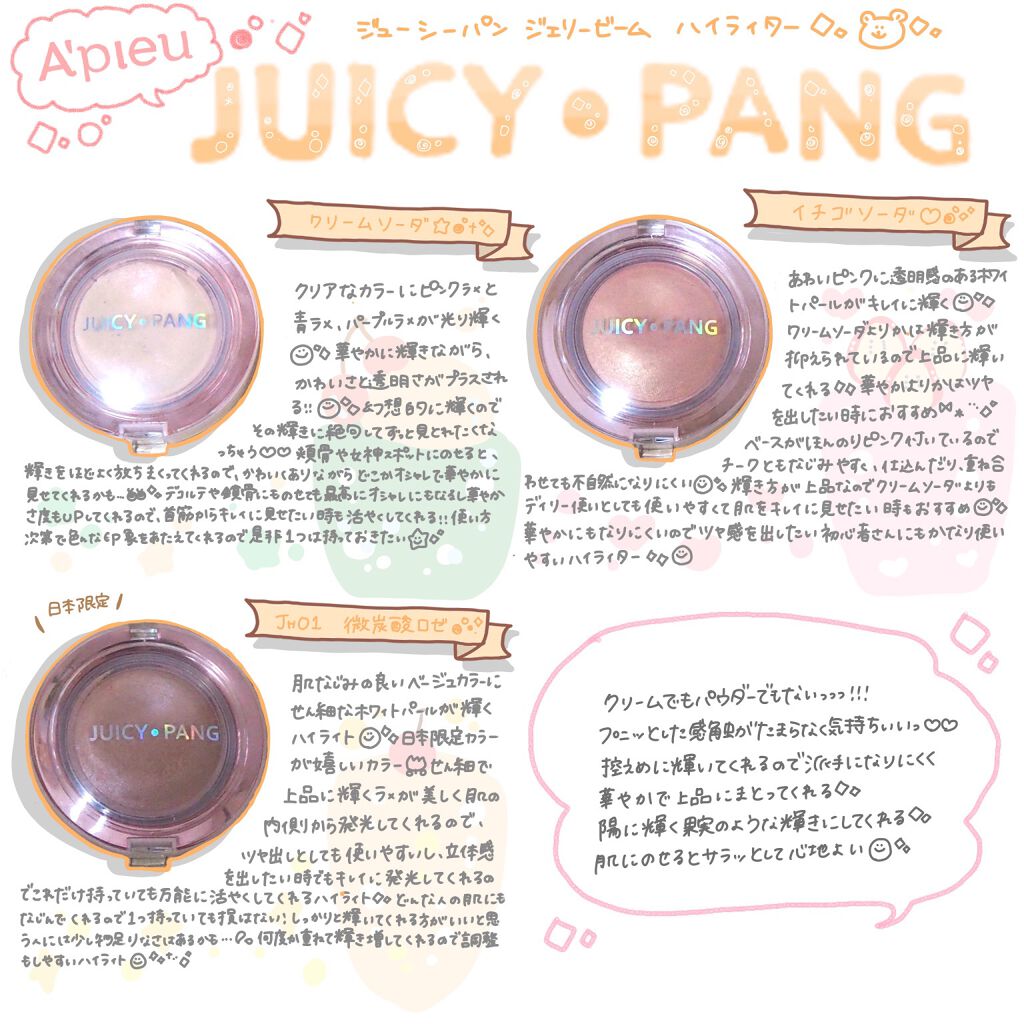 A'pieu
ジューシーパン ジェリービーム ハイライター
JUICY・PANG
クリームソーダ
JUICY・PANG
クリアなカラーにピンクラメと
青ラメ、パープルラメが光り輝く
華やかに輝きながら、
かわいさと透明さがプラスされ
る!! 幻想的に輝くので
その輝きに絶句してずっと見とれたくな
っちゃう♡♡ 頬骨や女神スポットにのせると、
輝きをほどよく放ちまくってくれるので、かわいくありながら どこかオシャレで華やかに
見せてくれるかも… デコルテや鎖骨にものせても最高にオシャレにもなるし華やか
さ度もUPしてくれるので、首筋からキレイに見せたい時も活やくしてくれる!! 使い方
次第で色んな印象をあたえてくれるので是非1つは持っておきたい
イチゴソーダ♡
JUICY・PANG
あわいピンクに透明感のあるホワイ
トパールがキレイに輝く
クリームソーダよりかは輝き方が
抑えられているので上品に輝い
てくれる 華やかよりかはツヤ
を出したい時におすすめ
ベースがほんのりピンク付いているので
チークともなじみやすく、仕込んだり、重ね合
わせても不自然になりにくい 輝き方が上品なのでクリームソーダよりも
デイリー使いとしても使いやすくて肌をキレイに見せたい時もおすすめ
華やかにもなりにくいのでツヤ感を出したい初心者さんにもかなり使い
やすいハイライター
日本限定
JH01 微炭酸ロゼ
JUICY・PANG
肌なじみの良いベージュカラーに
せん細なホワイトパールが輝く
ハイライト 日本限定カラー
が嬉しいカラー せん細で
上品に輝くラメが美しく肌の
内側から発光してくれるので、
ツヤ出しとしても使いやすいし、立体感
を出したい時でもキレイに発光してくれるの
でこれだけ持っていても万能に活やくしてくれるハイライト どんな人の肌にも
なじんでくれるので1つ持っていても損はない! しっかりと輝いてくれる方がいいと思
う人には少し物足りなさはあるかも… 何度か重ねて輝き増してくれるので調整
もしやすいハイライト
クリームでもパウダーでもないっっっ!!!
プニッとした感触がたまらなく気持ちいいっ♡♡
控えめに輝いてくれるので派手になりにくく
華やかで上品にまとってくれる
陽に輝く果実のような輝きにしてくれる
肌にのせるとサラッとして心地よい